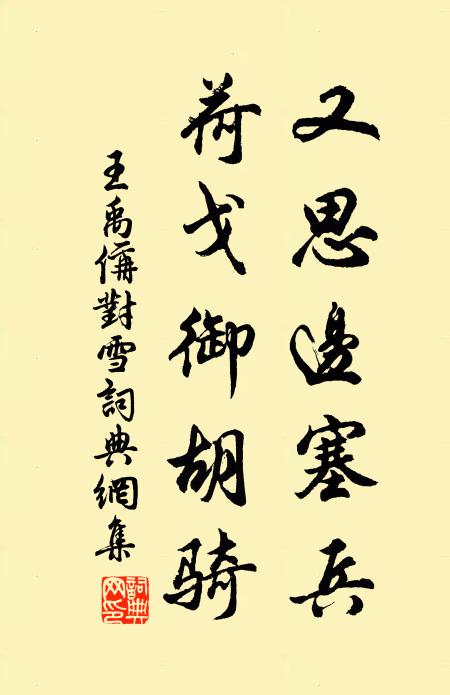 又思邊塞兵
荷戈御胡骑
王禹偁對雪詞典網集
詞典网印